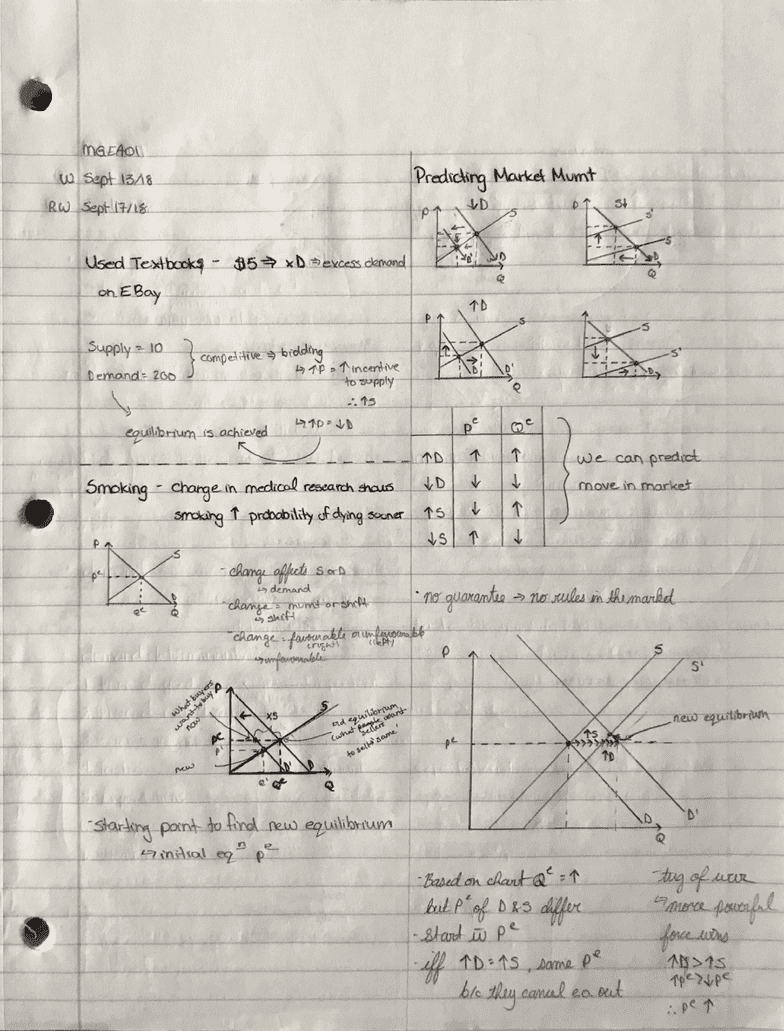 MGEA01
W Sept 13/18
RW Sept 17/18
Used Textbooks - $5 ⇒ xD ⇒ excess demand
on EBay
Supply = 10
Demand = 200
} competitive ⇒ bidding
↳ ↑P = ↑ incentive
to supply
∴ ↑S
↳ ↑P = ↓D
equilibrium is achieved
Smoking - change in medical research shows
smoking ↑ probability of dying sooner
P
S
Pᵉ
D
Qᵉ
Q
- change affects S or D
↳ demand
- change = mvmt or shift
↳ shift
- change = favourable or unfavourable
(right) (left)
↳ unfavourable
what buyers
want to buy
now
P
xS
S
old equilibrium
(what people want
sellers
to sell) 'same'
Pᵉ
P'
new
Q'
Qᵉ
D'
D
Q
- starting point to find new equilibrium
↳ initial eqⁿ Pᵉ
Predicting Market Mvmt
↓D
P
S
D'
D
Q
S↓
P
S'
S
D
Q
↑D
P
S
D
D'
Q
S
S'
D
Pᵉ Qᵉ
↑D ↑ ↑
↓D ↓ ↓
↑S ↓ ↑
↓S ↑ ↓
} we can predict
move in market
· no guarantee → no rules in the market
P
S
S'
new equilibrium
↑S
Pᵉ
↑D
D
D'
Q
- Based on chart Qᵉ = ↑
but Pᵉ of D & S differ
- Start w̄ Pᵉ
- iff ↑D = ↑S, same Pᵉ
b/c they cancel ea out
- tug of war
↳ more powerful
force wins
↑D > ↑S
↑Pᵉ > ↓Pᵉ
∴ Pᵉ ↑